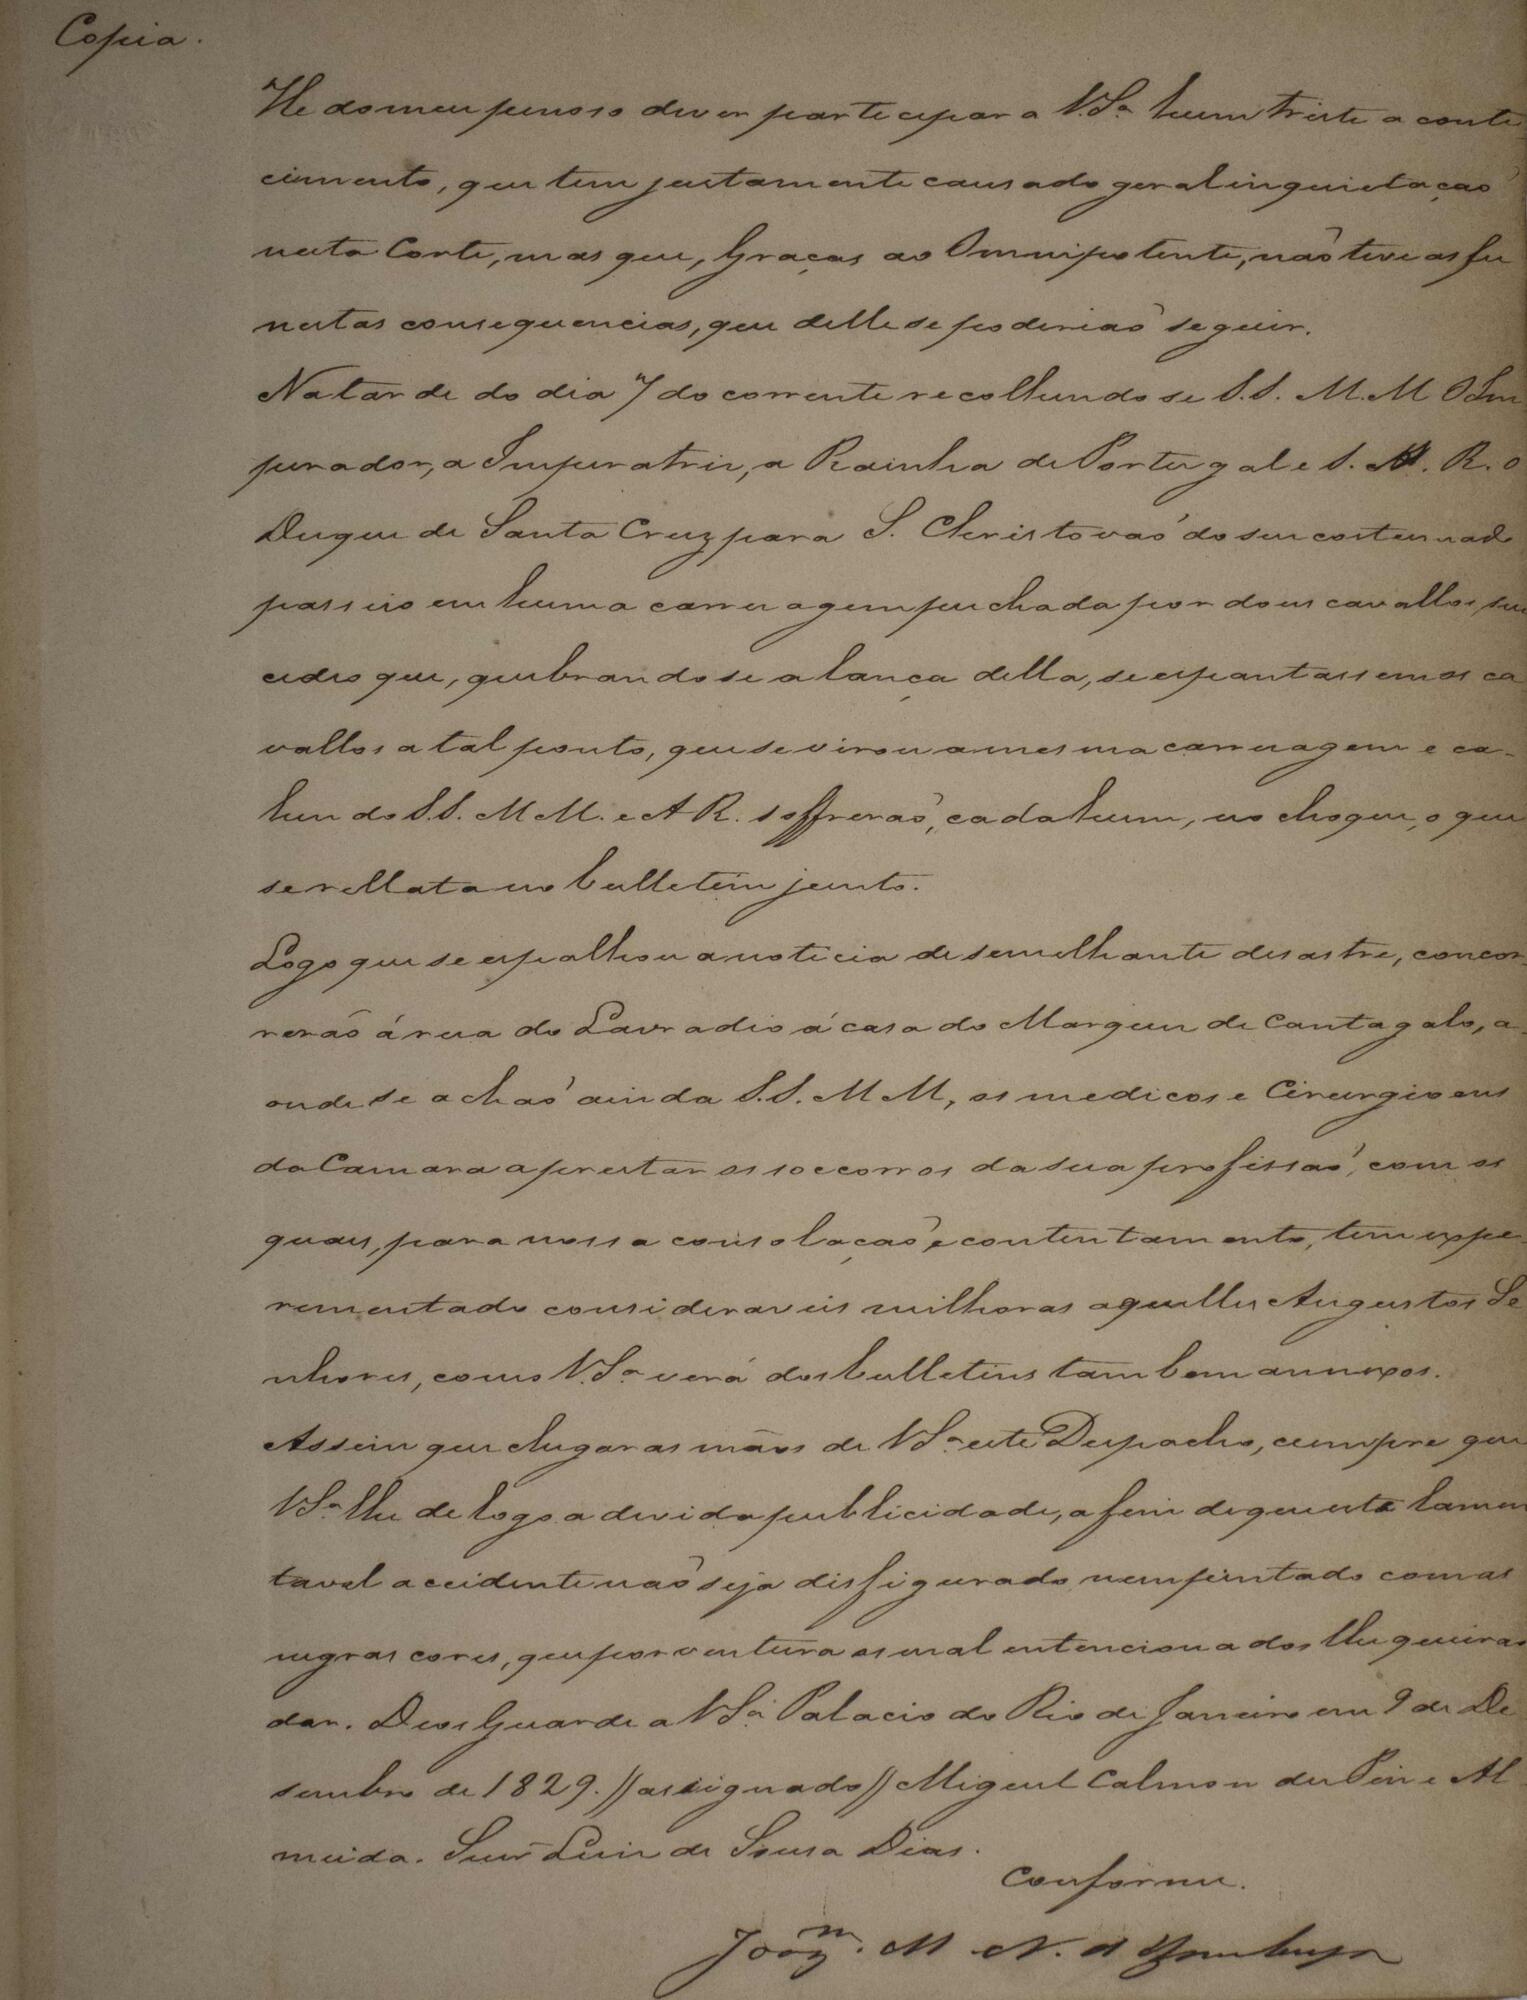 Copia.
He do meu penoso dever participar a V.Sª hum triste aconte
cimento, que tem justamente causado geral inquietação
nesta Corte, mas que, Graças ao Omnipotente, não teve as fu
nestas consequencias, que delle se poderiaõ seguir.
Na tarde do dia 7 do corrente recolhendo se S.S. M.M O Im
perador, a Imperatriz, a Rainha de Portugal e S. A. R. o
Duque de Santa Cruz para S. Christovaõ do seu costumado
passeio em huma carruagem puchada por dous cavallos, suc
cedeo que, quebrando se a lança della, se espantassem os ca
vallos a tal ponto, que se virou a mesma carruagem e ca-
hindo S.S. M M. e A R. soffreraõ, cada hum, no choque, o que
se rellata no bulletim junto.
Logo que se espalhou a noticia de semelhante desastre, concor
reraõ á rua do Lavradio á casa do Marquez de Cantagalo, a-
onde se achaõ ainda S.S. M M, os medicos e Cirurgioens
da Camara a prestar os soccorros da sua profissaõ, com os
quaes, para nossa consolaçaõ e contentamento, tem expe
rementado consideraveis milhoras aquelles Augustos Se
nhores, como V.Sª verá dos bulletins tambem annexos.
Assim que chegar as mãos de V Sª este Despacho, cumpre que
V Sª lhe de logo a devida publicidade, a fim de que este lamen
tavel accidente naõ seja disfigurado, nem pintado com as
negras cores, que por ventura os mal entencionados lhe queiraõ
dar. Deos Guarde a V Sª Palacio do Rio de Janeiro em 9 de De
sembro de 1829. // assignado // Miguel Calmon du Pin e Al
meida. Snr̃ Luiz de Sousa Dias.
Conforme.
Joaqᵐ. M N. d'